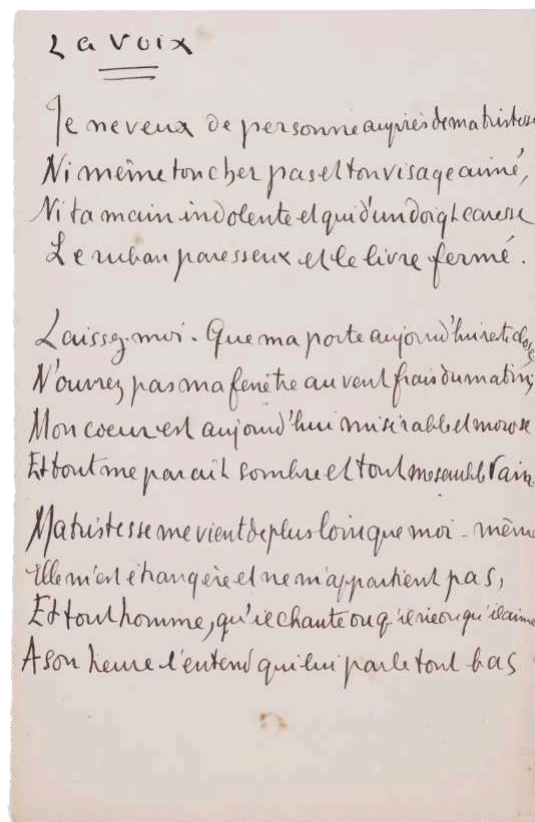 La Voix
Je ne veux de personne auprès de ma tristesse
Ni même ton cher pas et ton visage aimé,
Ni ta main indolente et qui d'un doigt caresse
Le ruban paresseux et le livre fermé.
Laissez-moi. Que ma porte aujourd'hui reste close
N'ouvrez pas ma fenêtre au vent frais du matin;
Mon coeur est aujourd'hui misérable et morose
Et tout me paraît sombre et tout me semble vain
Ma tristesse me vient de plus loin que moi-même
Elle m'est étrangère et ne m'appartient pas,
Et tout homme, qu'il chante ou qu'il rie ou qu'il aime
A son heure l'entend qui lui parle tout bas